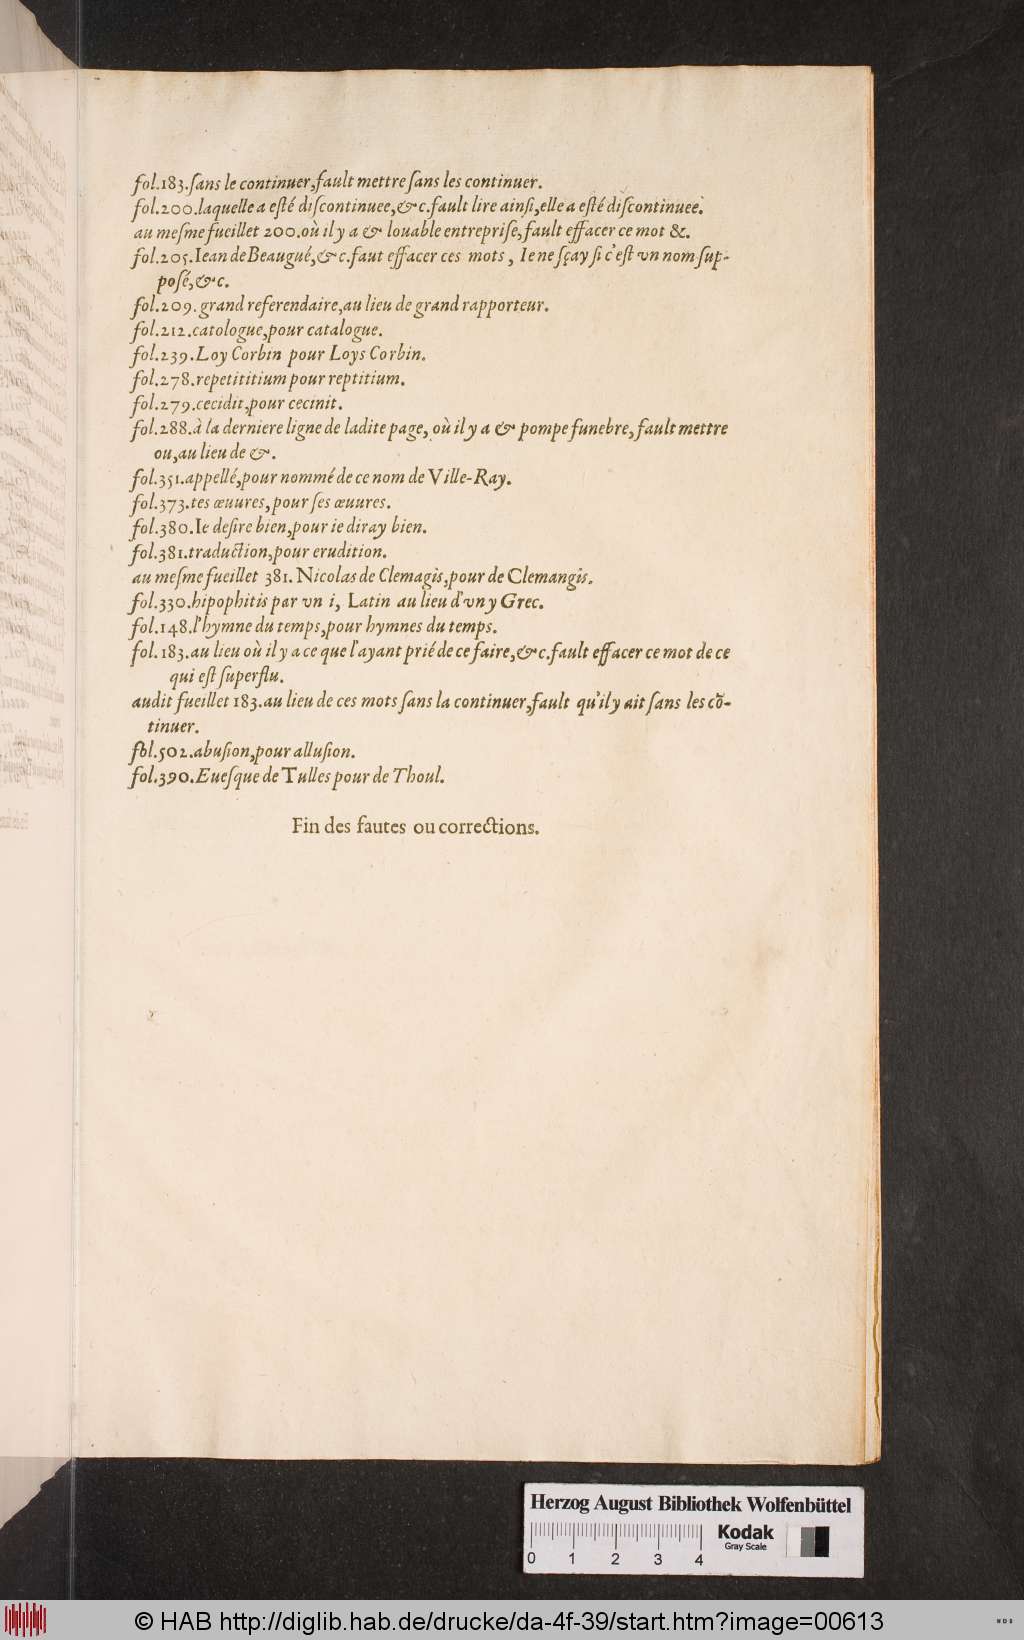 fol.183.ſans le continuer,fault mettre ſans les continuer.
fol.200.laquelle a eſté diſcontinuee,&c.fault lire ainſi,elle a eſté diſcontinuee.
au meſme fueillet 200.où il y a & louable entrepriſe,fault effacer ce mot &.
fol.205.Iean de Beaugué,&c.faut effacer ces mots, Ie ne ſçay ſi c'eſt vn nom ſup-
poſé,&c.
fol.209.grand referendaire,au lieu de grand rapporteur.
fol.212.catologue,pour catalogue.
fol.239.Loy Corbin pour Loys Corbin.
fol.278.repetititium pour reptitium.
fol.279.cecidit,pour cecinit.
fol.288.à la derniere ligne de ladite page, où il y a & pompe funebre,fault mettre
ou,au lieu de &.
fol.351.appellé,pour nommé de ce nom de Ville-Ray.
fol.373.tes œuures,pour ſes œuures.
fol.380.Ie deſire bien,pour ie diray bien.
fol.381.traduction,pour erudition.
au meſme fueillet 381. Nicolas de Clemagis,pour de Clemangis.
fol.330.hipophitis par vn i, Latin au lieu d'vn y Grec.
fol.148.l'hymne du temps,pour hymnes du temps.
fol.183.au lieu où il y a ce que l'ayant prié de ce faire,&c.fault effacer ce mot de ce
qui eſt ſuperflu.
audit fueillet 183.au lieu de ces mots ſans la continuer,fault qu'il y ait ſans les cō-
tinuer.
fol.502.abuſion,pour alluſion.
fol.390.Eueſque de Tulles pour de Thoul.
Fin des fautes ou corrections.
Herzog August Bibliothek Wolfenbüttel
Kodak
Gray Scale
0 1 2 3 4
© HAB http://diglib.hab.de/drucke/da-4f-39/start.htm?image=00613